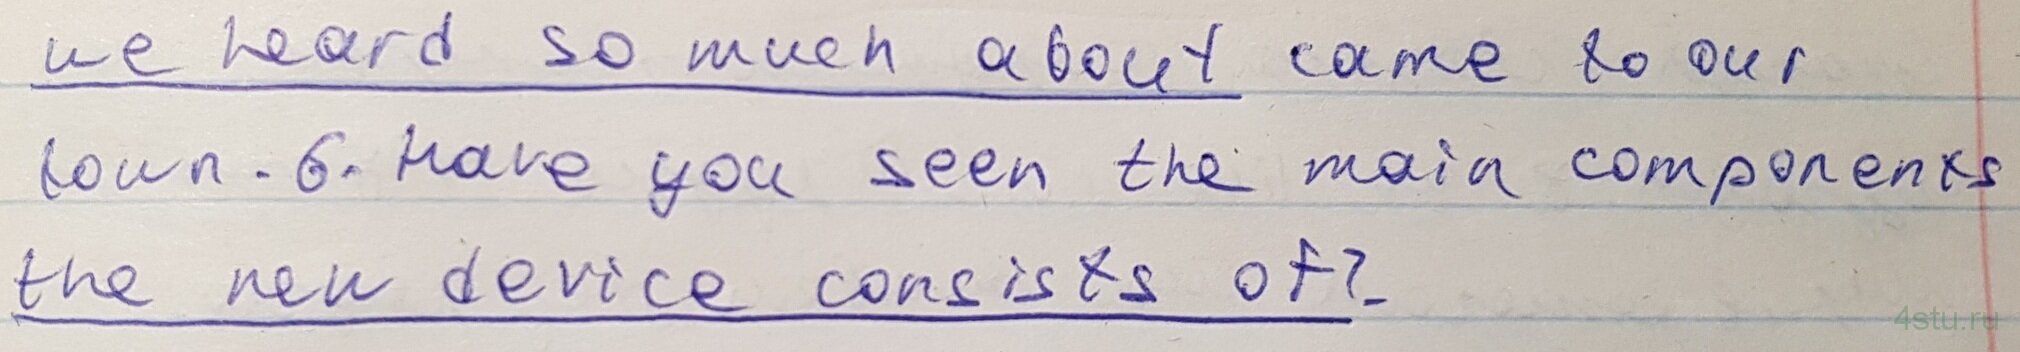 we heard so much about came to our
town. 6. Have you seen the main components
the new device consists of?
4stu.ru